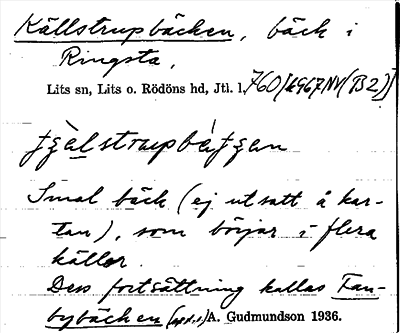 Källstrupbäcken, bäck i
Ringsta,
Lits sn, Lits o. Rödöns hd, Jtl. l, 760 [k967NV(B2)]
Smal bäck (ej utsatt å kar-
tan), som börjar i flera
källor.
Dess fortsättning kallas Fan-
bybäcken (upt.s.) A. Gudmundson 1936.